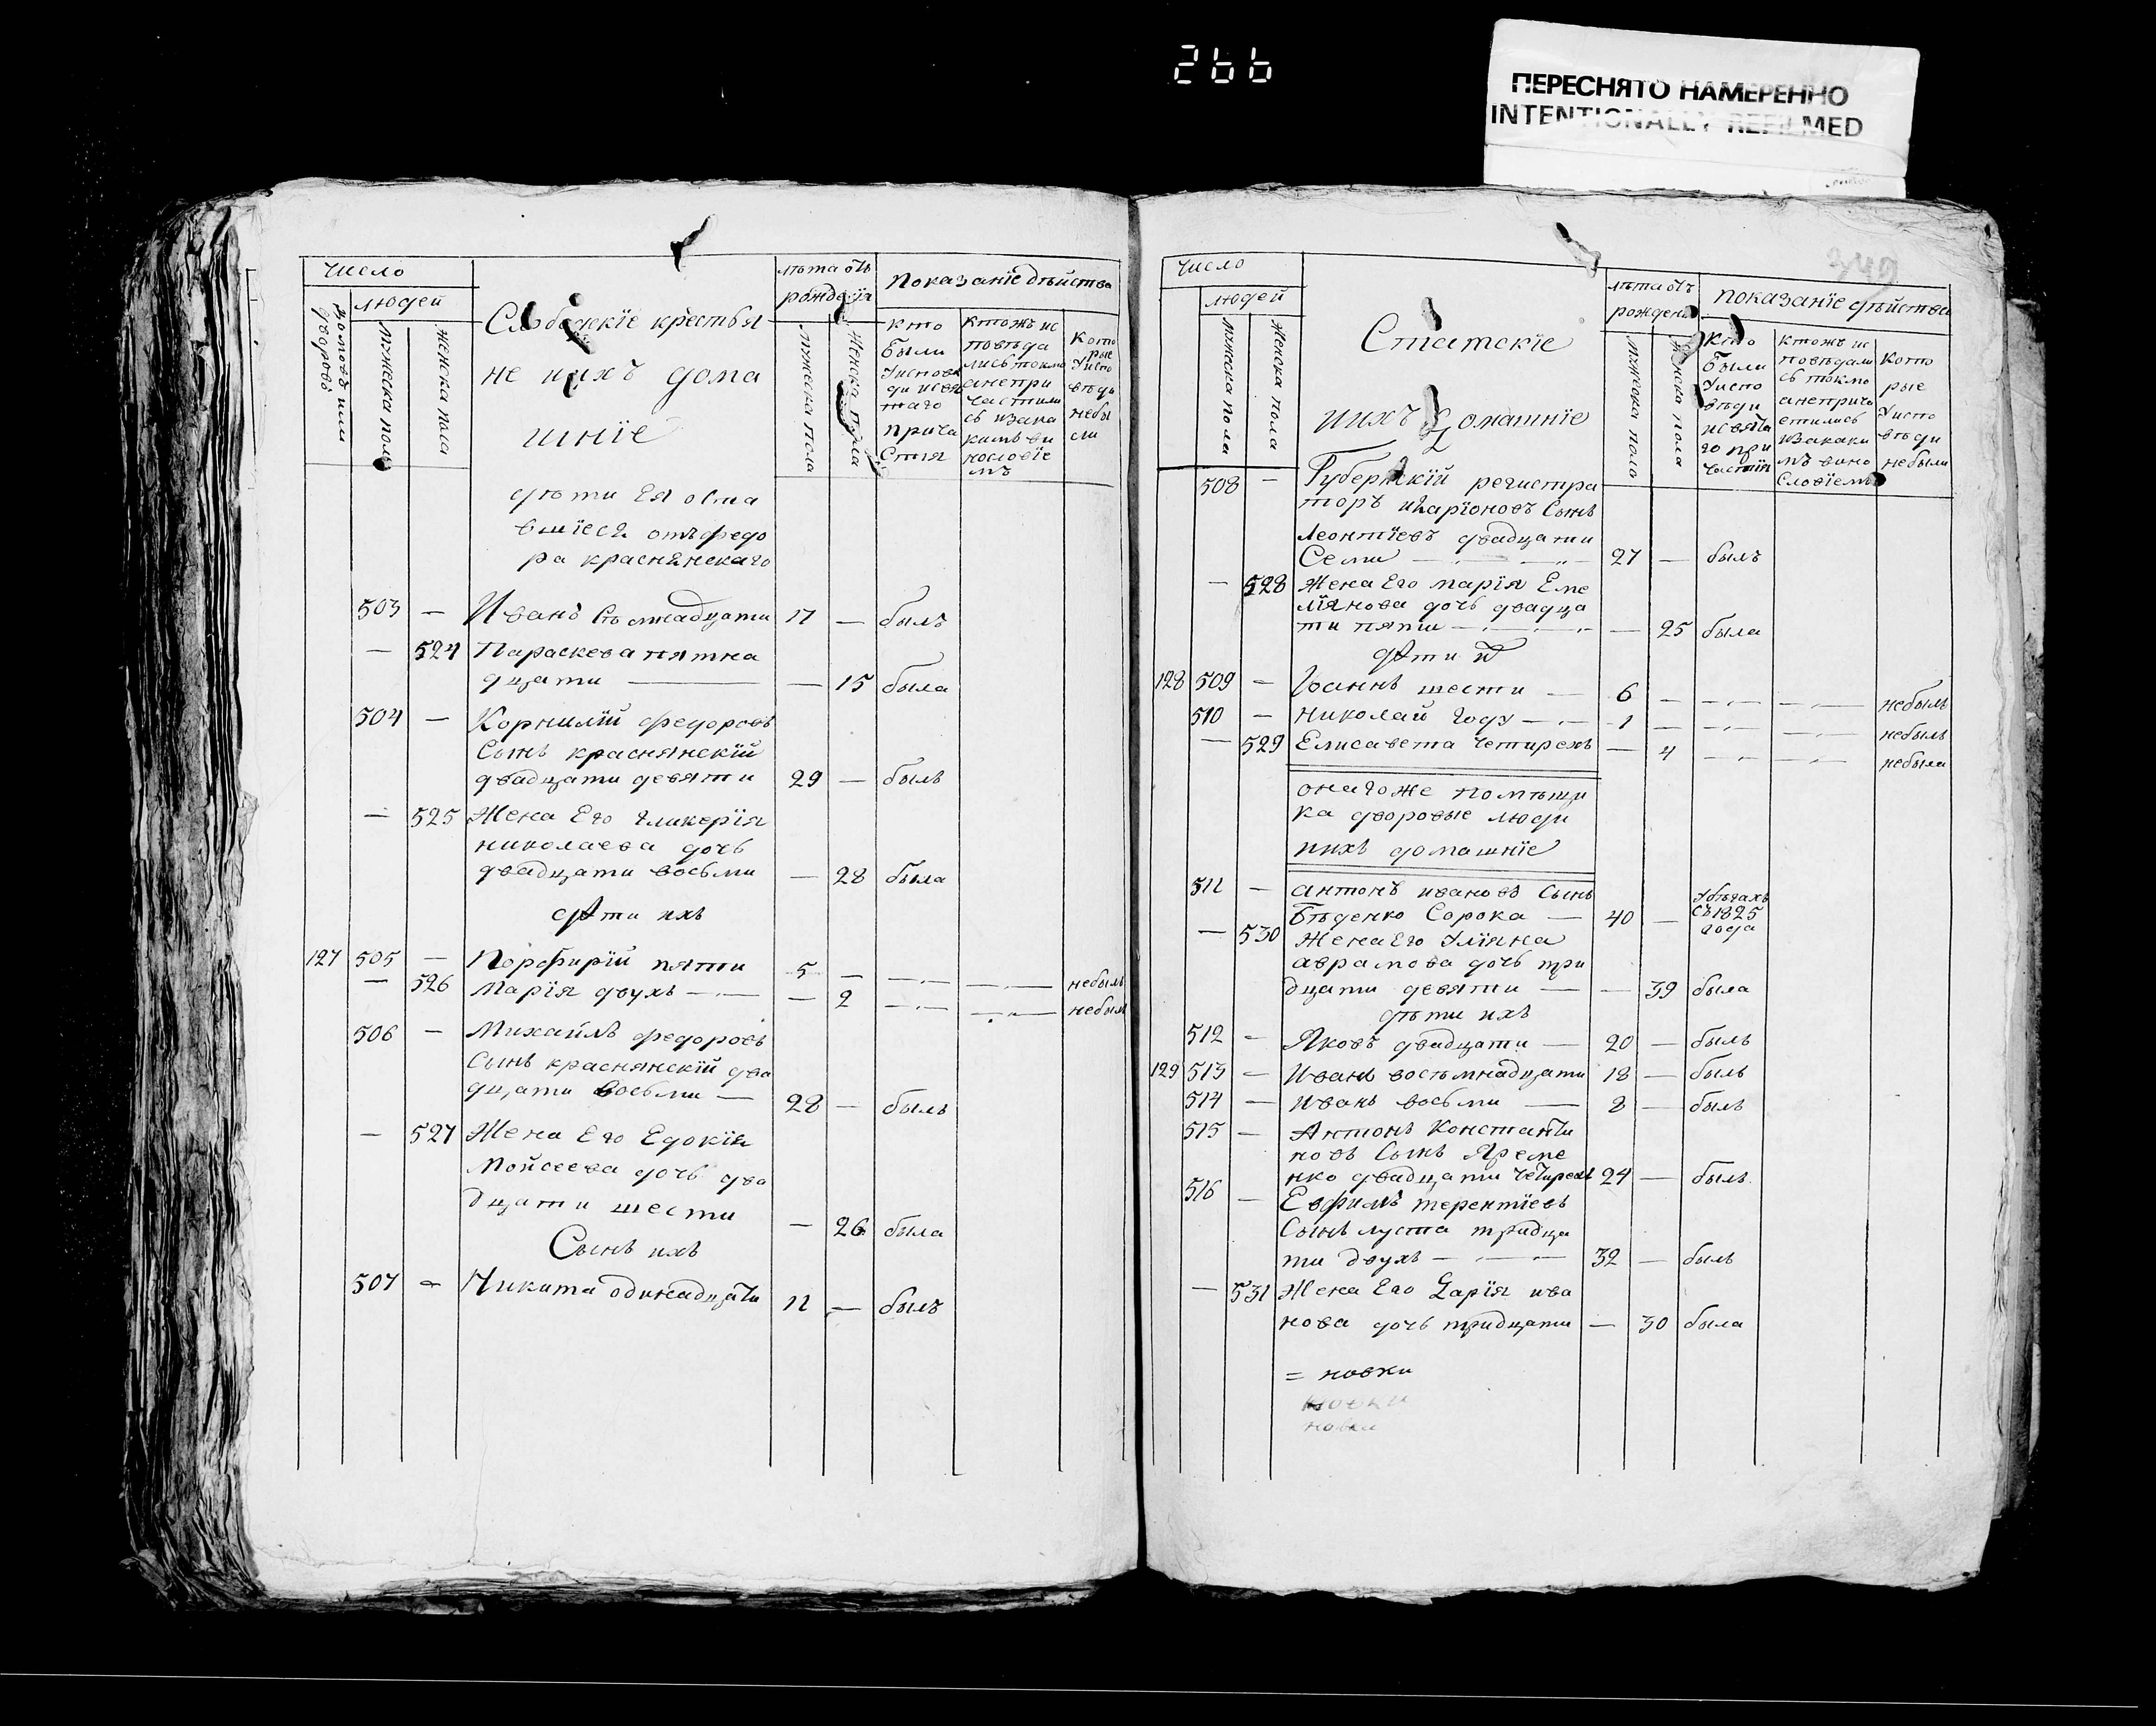 266
ПЕРЕСНЯТО НАМЕРЕННО
INTENTIONALLY REFILMED
число
людей
домовъ или дворовъ
мужеска пола
женска пола
крестья
не ихъ дома
шніе
лѣта отъ
рожденія
мужеска пола
женска пола
показаніе дѣйства
кто
были
у испове
ди и свя
таго
прича
стія
ктожъ ис
повѣда
лись токмо
а непри
частили
сь и зака
кимъ ви
нословіе
мъ
кото
рые
у испо
вѣди
небы
ли
дѣти Ея оста
вшіеся отъ федо
ра краснянскаго
503 — Иванъ Семнадцати 17 — былъ
— 524 Параскева пятна
дцати — — 15 была
504 — Корнилій федоровъ
Сынъ краснянскій
двадцати девяти 29 — былъ
— 525 Жена Его гликерія
николаева дочь
двадцати восьми — 28 была
дѣти ихъ
127 505 — Порфирій пяти 5 — — — небылъ
— 526 Марія двухъ — — 2 — — небыла
506 — Михаилъ федоровъ
Сынъ краснянскій два
дцати восьми — 28 — былъ
— 527 Жена Его Едокія
Мойсеева дочь два
дцати шести — 26 была
Сынъ ихъ
507 — Никита одинадцати 11 — былъ
349
число
людей
мужеска пола
женска пола
Статскіе
ихъ Домашніе
лѣта отъ
рожденія
мужеска пола
женска пола
показаніе дѣйства
Кто
были
у испо
вѣди
и свята
го при
частія
ктожъ ис
повѣдали
сь токмо
а неприча
стились
и закаки
мъ вино
словіемъ
кото
рые
у испо
вѣди
небыли
508 — Губернскій регистра
торъ иларіоновъ Сынъ
Леонтіевъ двадцати
Семи — 27 — былъ
— 528 Жена Его марія Еме
ліянова дочь двадца
ти пяти — — 25 была
дѣти и
128 509 — Іоаннъ шести — 6 — — — небылъ
510 — николай году — 1 — — — небылъ
— 529 Елисавета четирехъ — 4 — — небыла
онагоже помѣщи
ка дворовые люди
ихъ домашніе
511 — антонъ ивановъ Сынъ
Бѣденко Сорока — 40 — Убѣгахъ
Съ 1825
года
— 530 Жена Его Уліяна
аврамова дочь три
дцати девяти — — 39 была
дѣти ихъ
512 — Яковъ двадцати — 20 — былъ
129 513 — Иванъ восьмнадцати 18 — былъ
514 — Иванъ восьми — 8 — былъ
515 — Антонъ Константи
новъ Сынъ Яреме
нко двадцати четирехъ 24 — былъ
516 — Евфимъ терентіевъ
Сынъ луста тридца
ти двухъ — 32 — былъ
— 531 Жена Его Дарія ива
нова дочь тридцати — 30 была
= новки
новки
новки